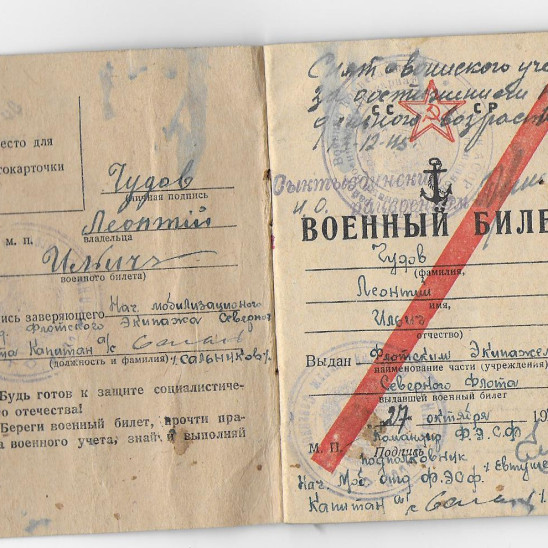 есто для
токарточки
М. П.
Чудов
(личная подпись
Леонтий
владельца
Ильич
военного билета)
ись заверяющего Нач. мобилизационного
Флотского Экипажа Северно
та Капитан а/с
(должность и фамилия) Сальников
Будь готов к защите социалистиче-
о отечества!
Береги военный билет, прочти пра-
а военного учета, знай и выполняй
Снят с воинского уче
за достижением
дельного возраст
-12-
СС СР
Сыктывдински
И. О.
ВОЕННЫЙ БИЛЕ
Чудов
(фамилия,
Леонтий
имя,
Ильич
отчество)
Выдан Флотским Экипажем
наименование части (учреждения)
Северного Флота
выдавшей военный билет
27 октября 19
Командир Ф.Э.С.Ф.
М. П. Подпись
подполковник
/Евтуше
Нач. Моб. отд ФЭСФ.
Капитан а/с